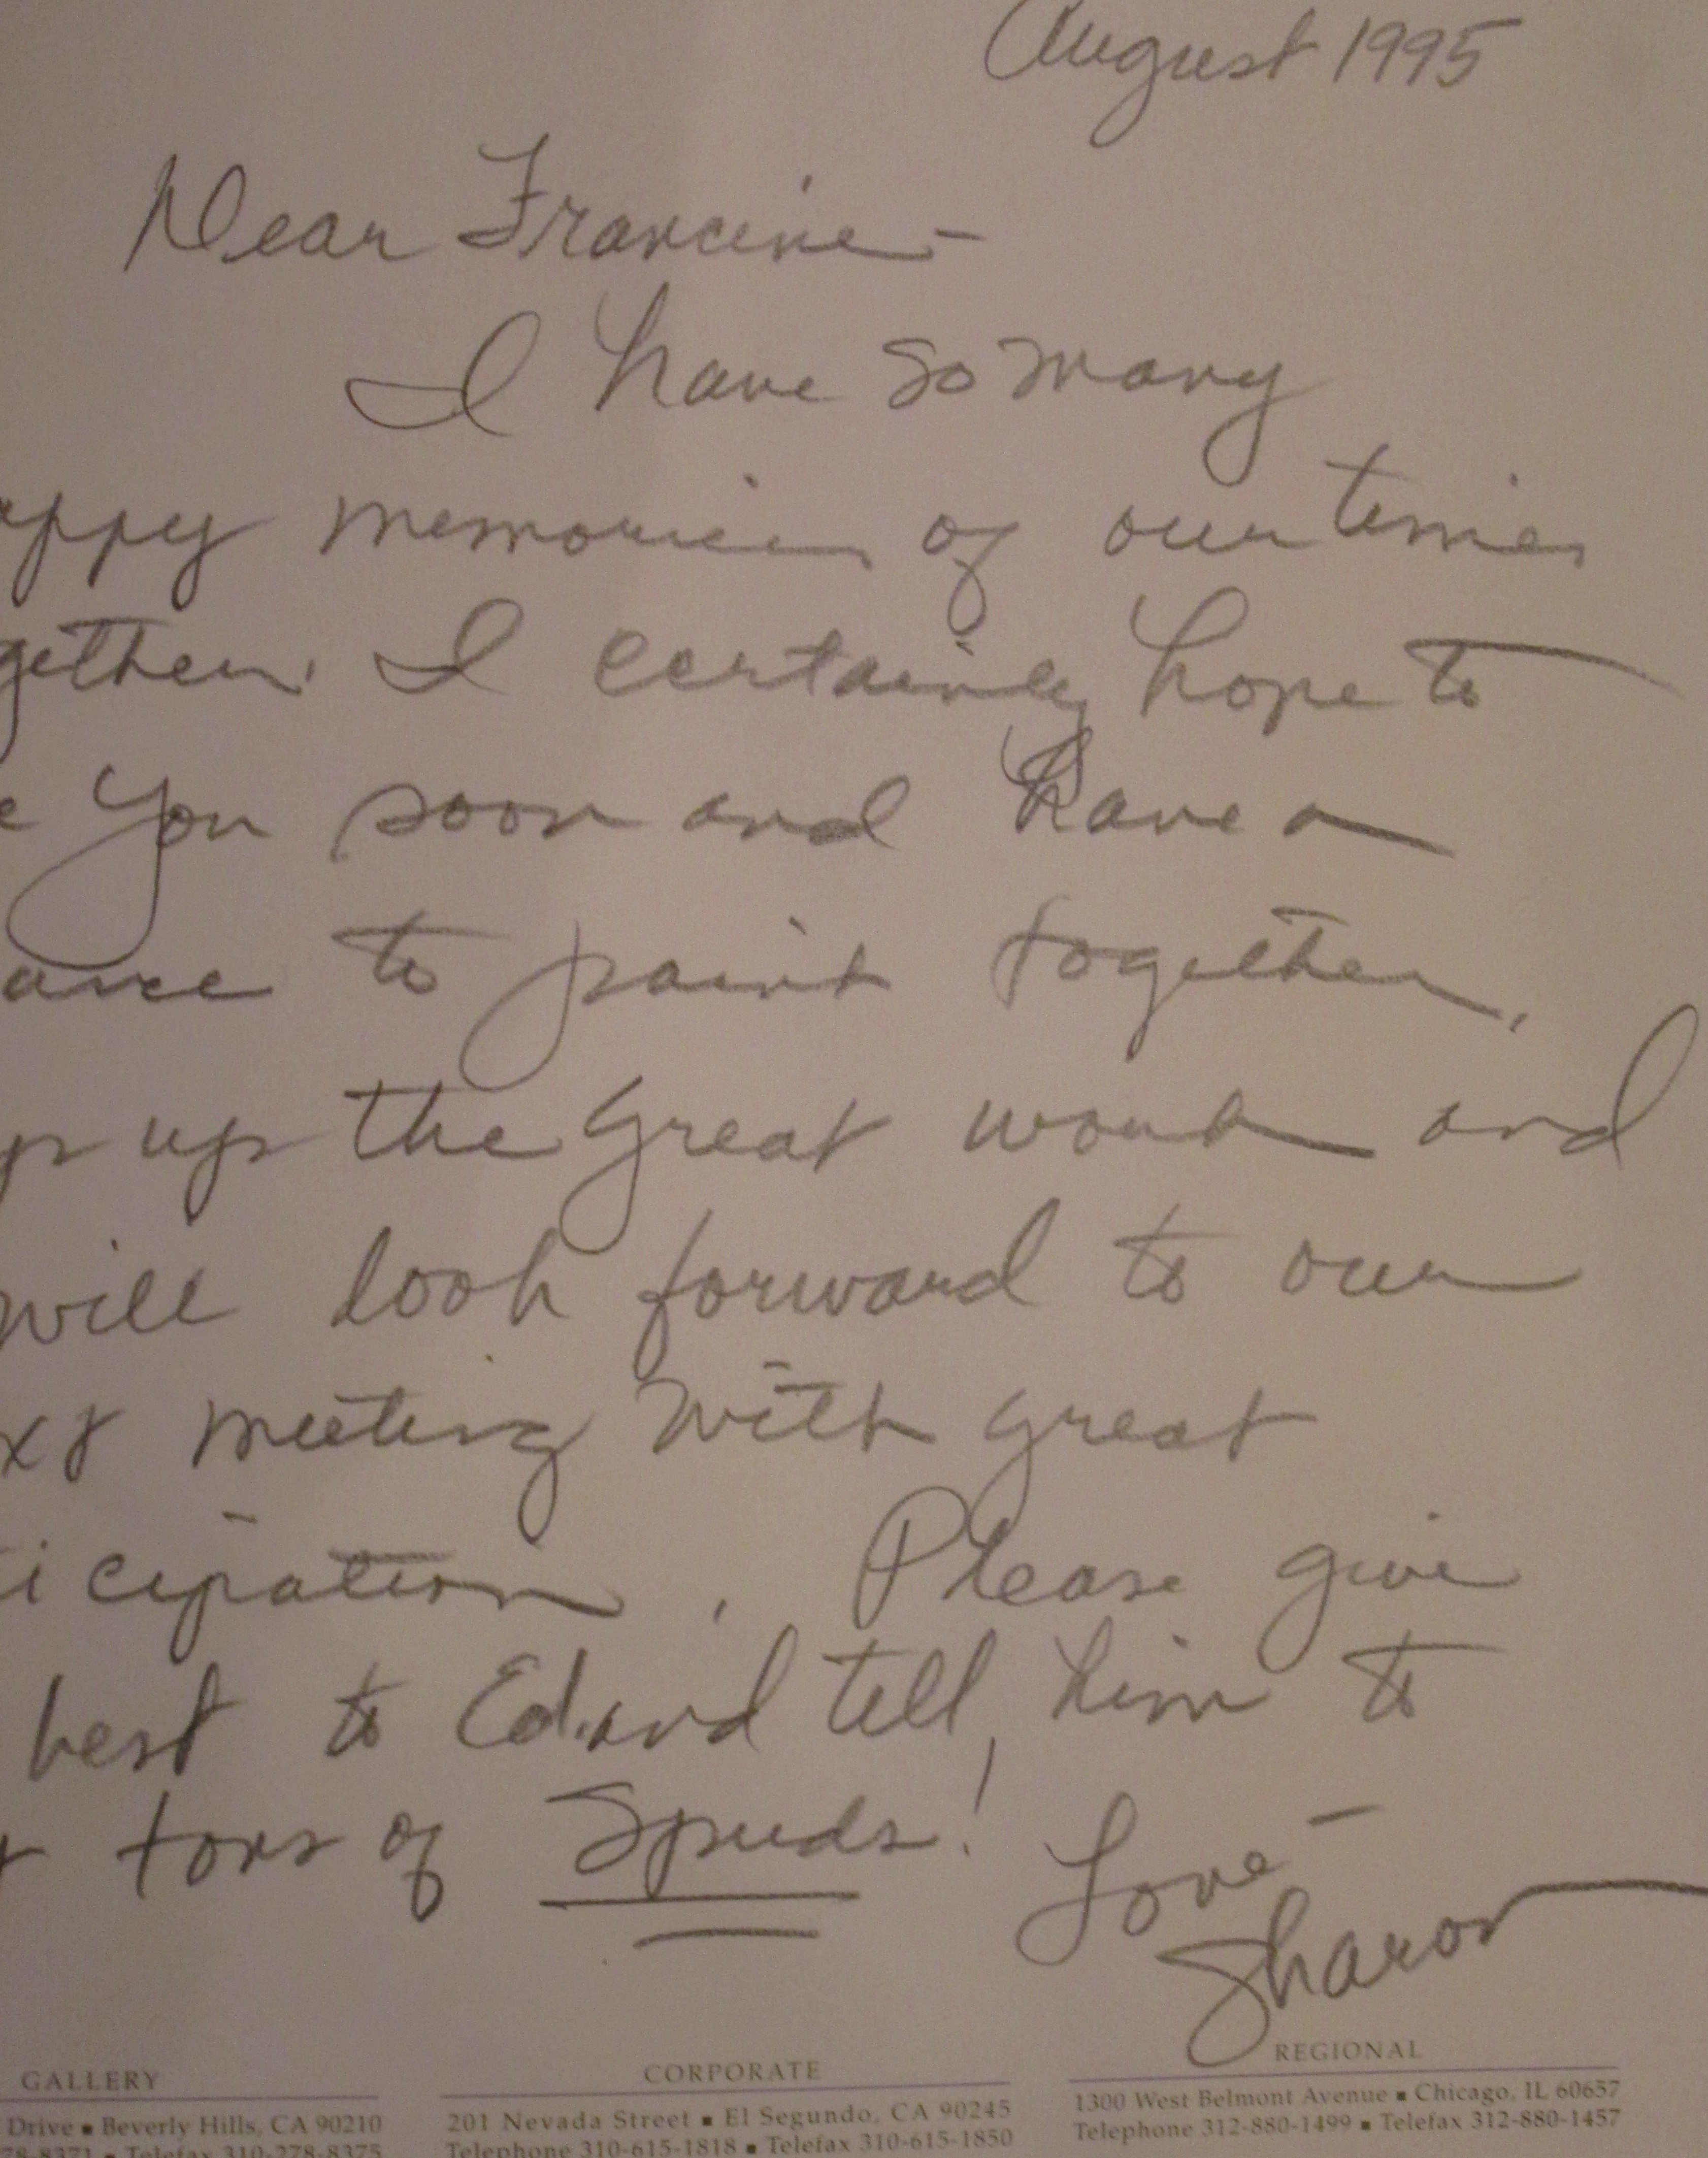 August 1995
Dear Francine -
I have so many
appy memories of our times
gether. I certainly hope to
e you soon and have a
ance to paint together.
p up the great work and
will look forward to our
xt meeting with great
ticipation. Please give
best to Ed. and tell him to
tons of Spuds!
Love -
Sharon
GALLERY
Drive ▪ Beverly Hills, CA 90210
78-8371 ▪ Telefax 310-278-8375
CORPORATE
201 Nevada Street ▪ El Segundo, CA 90245
Telephone 310-615-1818 ▪ Telefax 310-615-1850
REGIONAL
1300 West Belmont Avenue ▪ Chicago, IL 60657
Telephone 312-880-1499 ▪ Telefax 312-880-1457